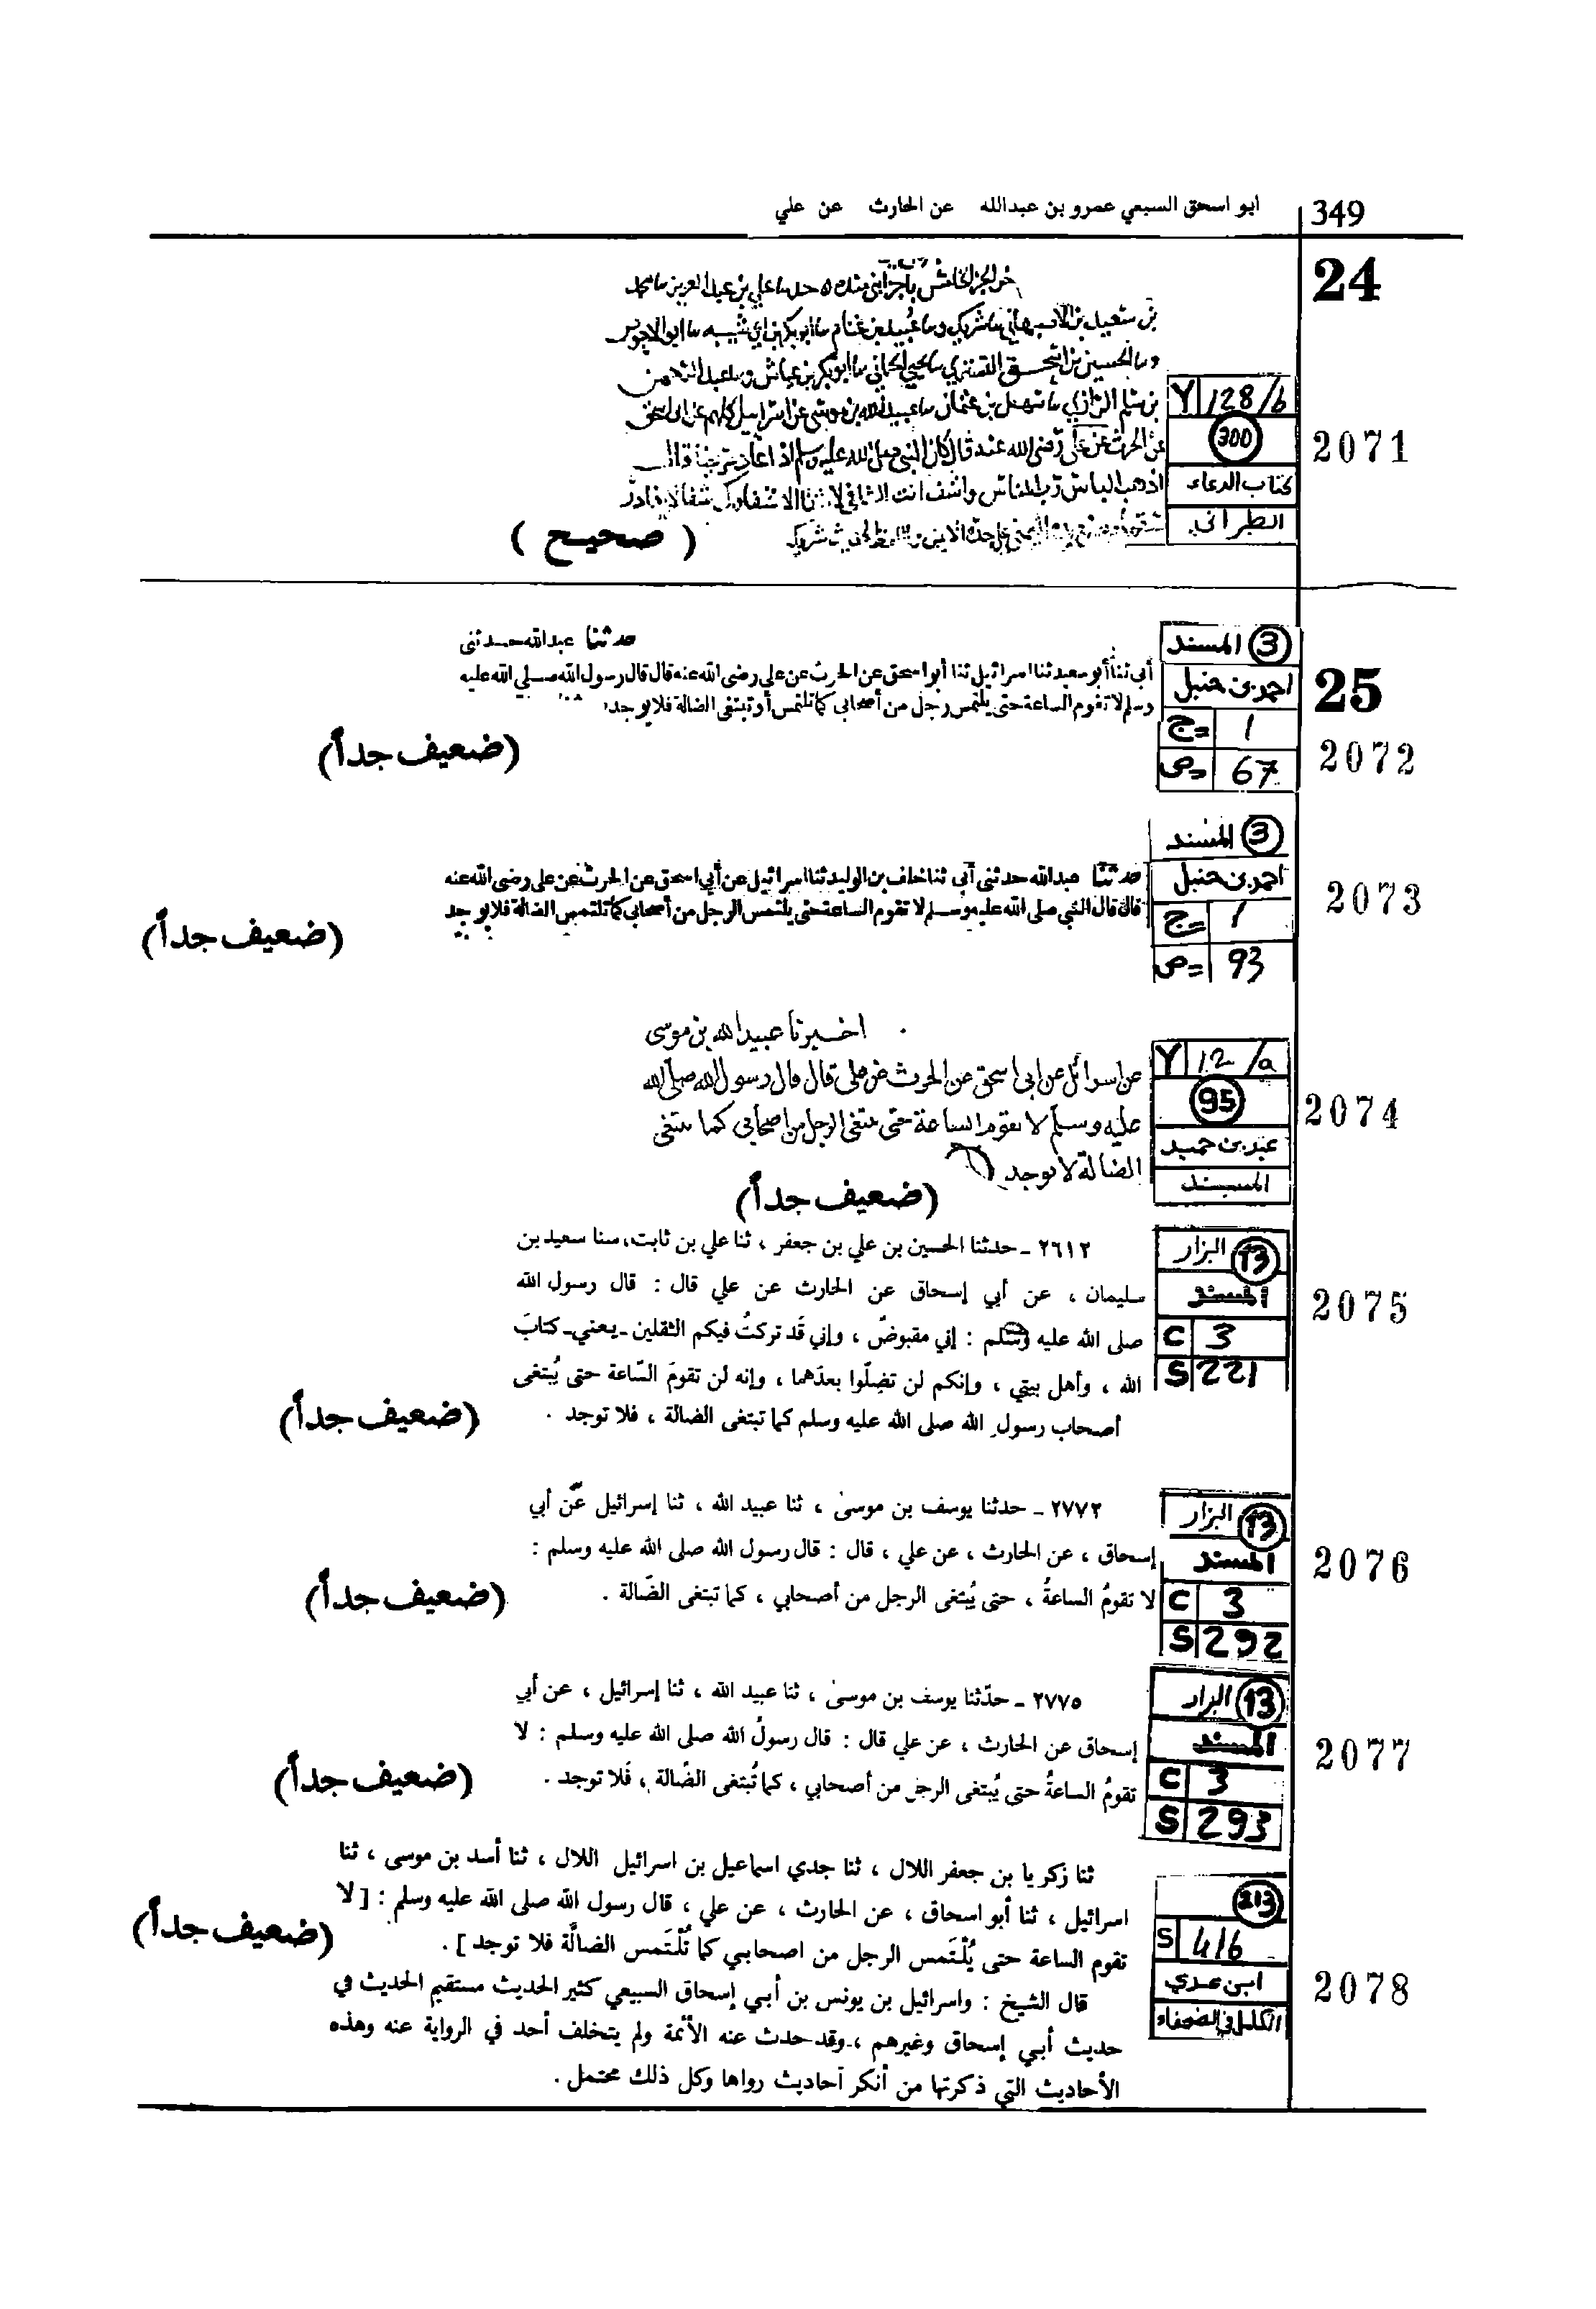 349 ابو اسحق السبعي عمرو بن عبدالله عن الحارث عن علي
24
حدثنا علي بن عبد العزيز
وعبيد بن غنام ثنا ابو بكر بن ابي شيبه ثنا ابو الاحوص
الحسين بن اسحق التستري ثنا يحيى الحماني ثنا ابو بكر بن عياش
ثنا سهل بن عثمان ثنا عبيد الله بن موسى عن اسرائيل كلهم عن ابي اسحق
عن الحرث عن علي رضى الله عنه قال كان النبي صلى الله عليه وسلم اذا عاد مريضا قال
اذهب الباس رب الناس واشف انت الشافي لا شفا الا شفاوك شفا لا يغادر
Y 128/b
300
كتاب الدعاء
الطبراني
2071
( صحيح )
25
2072
3 المسند
احمد بن حنبل
ج = 1
ص = 67
حدثنا عبدالله حدثني
أبي ثنا أبو سعيد ثنا اسرائيل ثنا أبو اسحق عن الحرث عن علي رضى الله عنه قال قال رسول الله صلى الله عليه
وسلم لا تقوم الساعة حتى يلتمس رجل من أصحابي كما تلتمس أو تبتغى الضالة فلا يوجد
(ضعيف جداً)
2073
3 المسند
احمد بن حنبل
ج = 1
ص = 93
حدثنا عبدالله حدثني أبي ثنا خلف بن الوليد ثنا اسرائيل عن أبي اسحق عن الحرث عن علي رضى الله عنه
قال قال النبي صلى الله عليه وسلم لا تقوم الساعة حتى يلتمس الرجل من أصحابي كما تلتمس الضالة فلا يوجد
(ضعيف جداً)
2074
Y 12/a
95
عبد بن حميد
المسند
اخبرنا عبيد الله بن موسى
عن اسرائل عن ابى اسحق عن الحرث عن على قال قال رسول الله صلى الله
عليه وسلم لا تقوم الساعة حتى يبتغى الرجل من اصحابي كما تبتغى
الضالة لا يوجد
(ضعيف جداً)
2075
13 البزار
المسند
C 3
S 221
٢٦١٢ - حدثنا الحسين بن علي بن جعفر ، ثنا علي بن ثابت، ثنا سعيد بن
سليمان ، عن أبي إسحاق عن الحارث عن علي قال : قال رسول الله
صلى الله عليه وسلم : إني مقبوضٌ ، وإني قَد تركتُ فيكم الثقلين - يعني - كتابَ
الله ، وأهل بيتي ، وإنكم لن تضِلّوا بعدَهما ، وإنه لن تقومَ السّاعة حتى يُبتغى
أصحاب رسولِ الله صلى الله عليه وسلم كما تبتغى الضالة ، فلا توجد .
(ضعيف جداً)
2076
13 البزار
المسند
C 3
S 292
٢٧٧٢ - حدثنا يوسف بن موسىٰ ، ثنا عبيد الله ، ثنا إسرائيل عَن أبي
إسحاق ، عن الحارث ، عن علي ، قال : قال رسول الله صلى الله عليه وسلم :
لا تقومُ الساعةُ ، حتى يُبتغى الرجل من أصحابي ، كما تبتغى الضّالة .
(ضعيف جداً)
2077
13 البزار
المسند
C 3
S 293
٢٧٧٥ - حدّثنا يوسف بن موسىٰ ، ثنا عبيد الله ، ثنا إسرائيل ، عن أبي
إسحاق عن الحارث ، عن علي قال : قال رسولُ الله صلى الله عليه وسلم : لا
تقومُ الساعةُ حتى يُبتغى الرجل من أصحابي ، كما تُبتغى الضّالة ، فَلا توجد .
(ضعيف جداً)
2078
213
S 416
ابن عدي
الكامل في الضعفاء
ثنا زكريا بن جعفر اللال ، ثنا جدي اسماعيل بن اسرائيل اللال ، ثنا أسد بن موسى ، ثنا
اسرائيل ، ثنا أبو اسحاق ، عن الحارث ، عن علي ، قال رسول الله صلى الله عليه وسلم : [ لا
تقوم الساعة حتى يُلْتَمس الرجل من اصحابي كما تُلْتَمس الضالَّة فلا توجد ] .
(ضعيف جداً)
قال الشيخ : واسرائيل بن يونس بن أبي إسحاق السبيعي كثير الحديث مستقيم الحديث في
حديث أبي إسحاق وغيرهم ، وقد حدث عنه الأئمة ولم يتخلف أحد في الرواية عنه وهذه
الأحاديث التي ذكرتها من أنكر أحاديث رواها وكل ذلك محتمل .